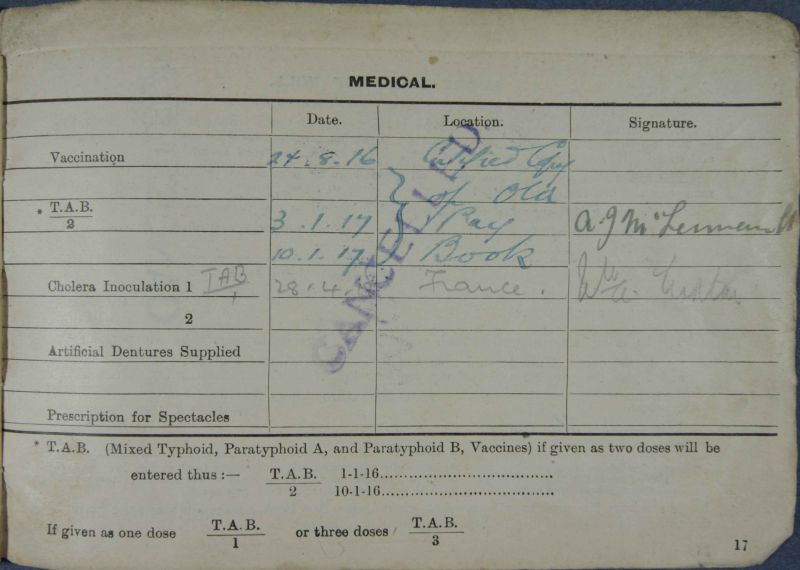 MEDICAL.
Date. Location. Signature.
Vaccination 24.8.16 Certified Copy
of Old
* T.A.B.
2 3.1.17 Pay a.J McLennan Lt
10.1.17 Book
Cholera Inoculation 1 TAB
1 28.4. France.
2
CANCELLED
Artificial Dentures Supplied
Prescription for Spectacles
* T.A.B. (Mixed Typhoid, Paratyphoid A, and Paratyphoid B, Vaccines) if given as two doses will be
entered thus :— T.A.B. 1-1-16..................................
2 10-1-16..................................
If given as one dose T.A.B. or three doses T.A.B.
1 3
17